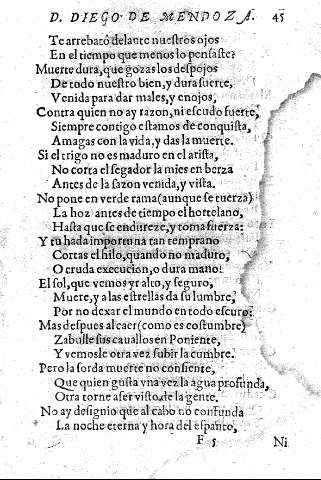 D. DIEGO DE MENDOZA. 45
Te arrebató delante nuestros ojos
En el tiempo que menos lo pensaste?
Muerte dura, que gozas los despojos
De todo nuestro bien, y dura suerte,
Venida para dar males, y enojos,
Contra quien no ay razon, ni escudo fuerte,
Siempre contigo estamos de conquista,
Amagas con la vida, y das la muerte.
Si el trigo no es maduro en el arista,
No corta el segador la mies en berza
Antes de la sazon venida, y vista.
No pone en verde rama (aunque se tuerza)
La hoz antes de tiempo el hortelano,
Hasta que se endureze, y toma fuerza:
Y tu hada importuna tan temprano
Cortas el hilo, quando no maduro,
O cruda execucion, o dura mano!
El sol, que vemos yr alto, y seguro,
Muere, y a las estrellas da su lumbre,
Por no dexar el mundo en todo escuro:
Mas despues al caer (como es costumbre)
Zabulle sus cauallos en Poniente,
Y vemosle otra vez subir la cumbre.
Pero la sorda muerte no consiente,
Que quien gusta vna vez la agua profunda,
Otra torne a ser visto de la gente.
No ay designio que al cabo no confunda
La noche eterna y hora del espanto,
F 5 Ni